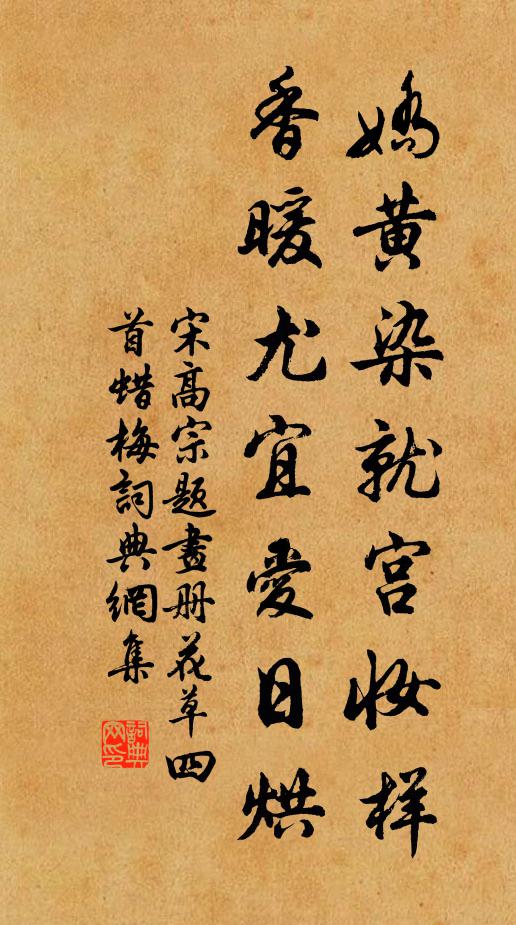 嬌黄染就宫妆样
香暖尤宜愛日烘
宋高宗题畫册花草四
首蜡梅詞典網集
詞典网印